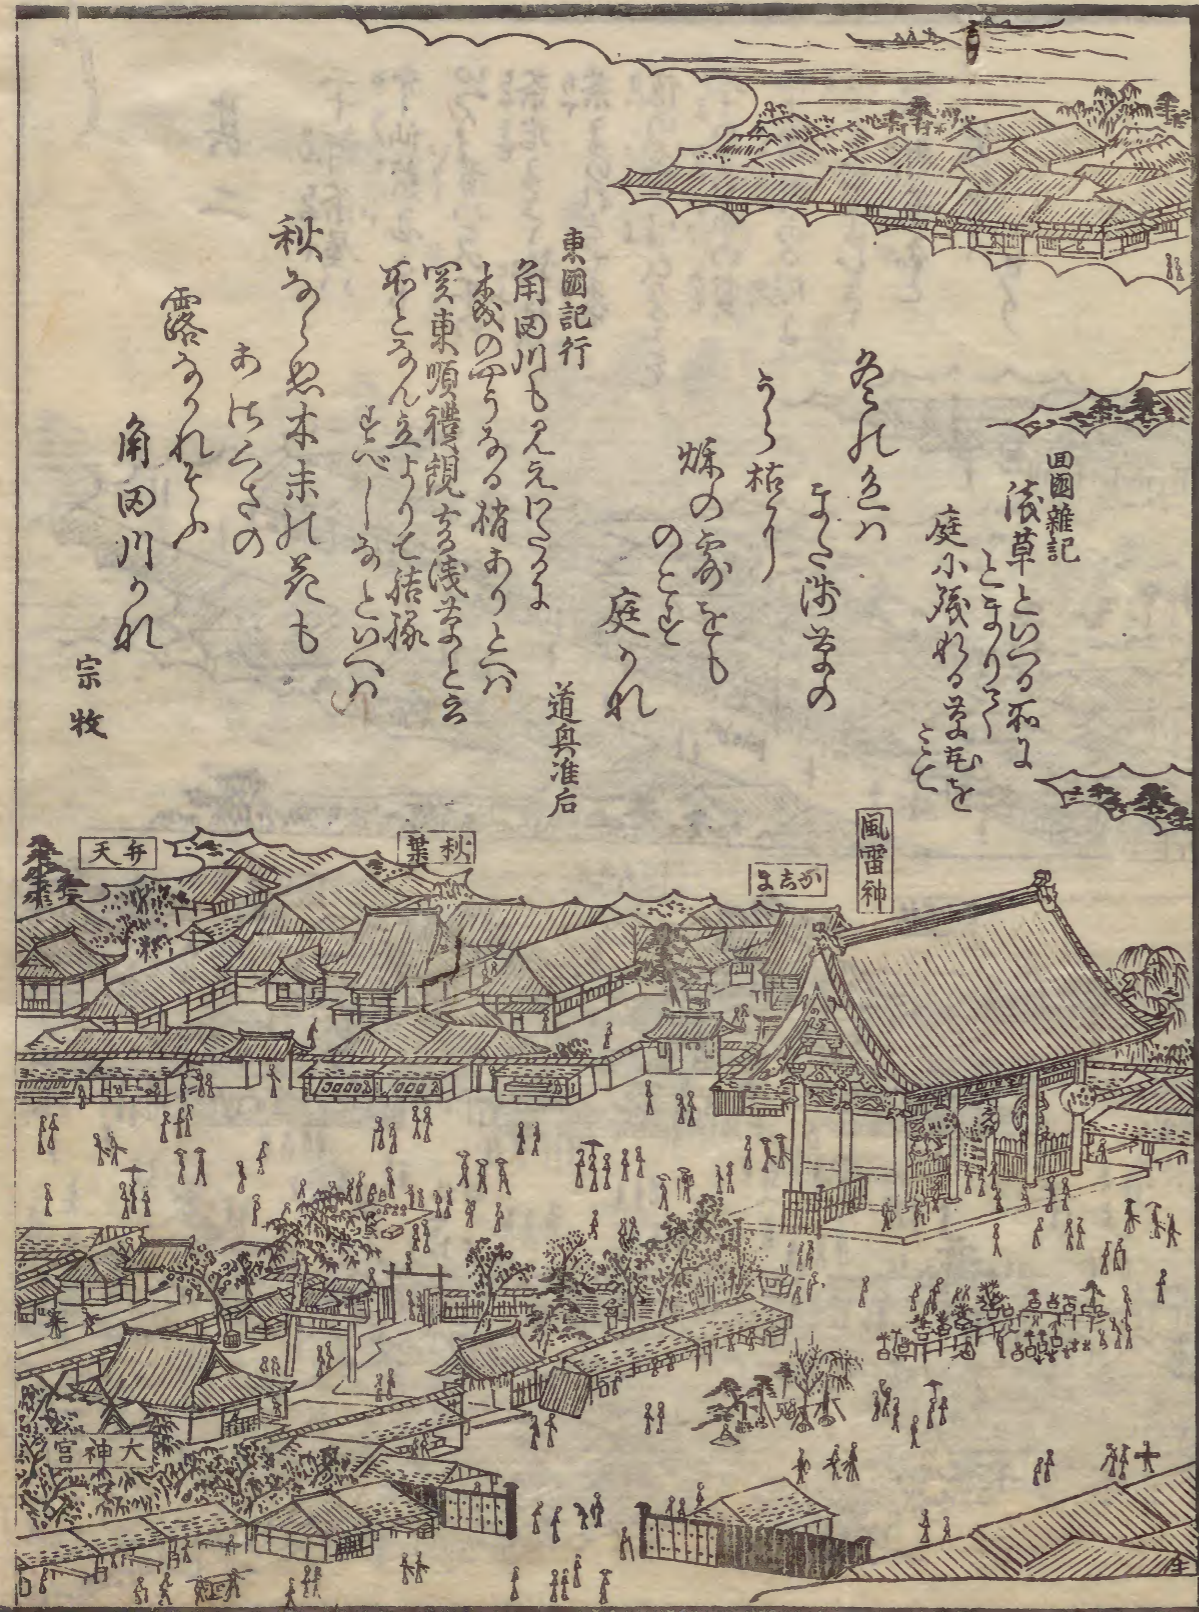 回國雜記
浅草といへる所に
とまりて
庭に残れる草花を
見て
冬の色は
また浅草の
うら枯に
秋の露をも
のこす
庭かな
道興准后
東國記行
角田川も見えわたるに
木或のやうなる梢ありとへは
関東順禮観音浅草と云
所となん立よりて結縁
すべしなといへは
秋ならぬ木末の花も
あさくさの
露なかれそふ
角田川かな
宗牧
風雷神
かしま
秋葉
弁天
大神宮